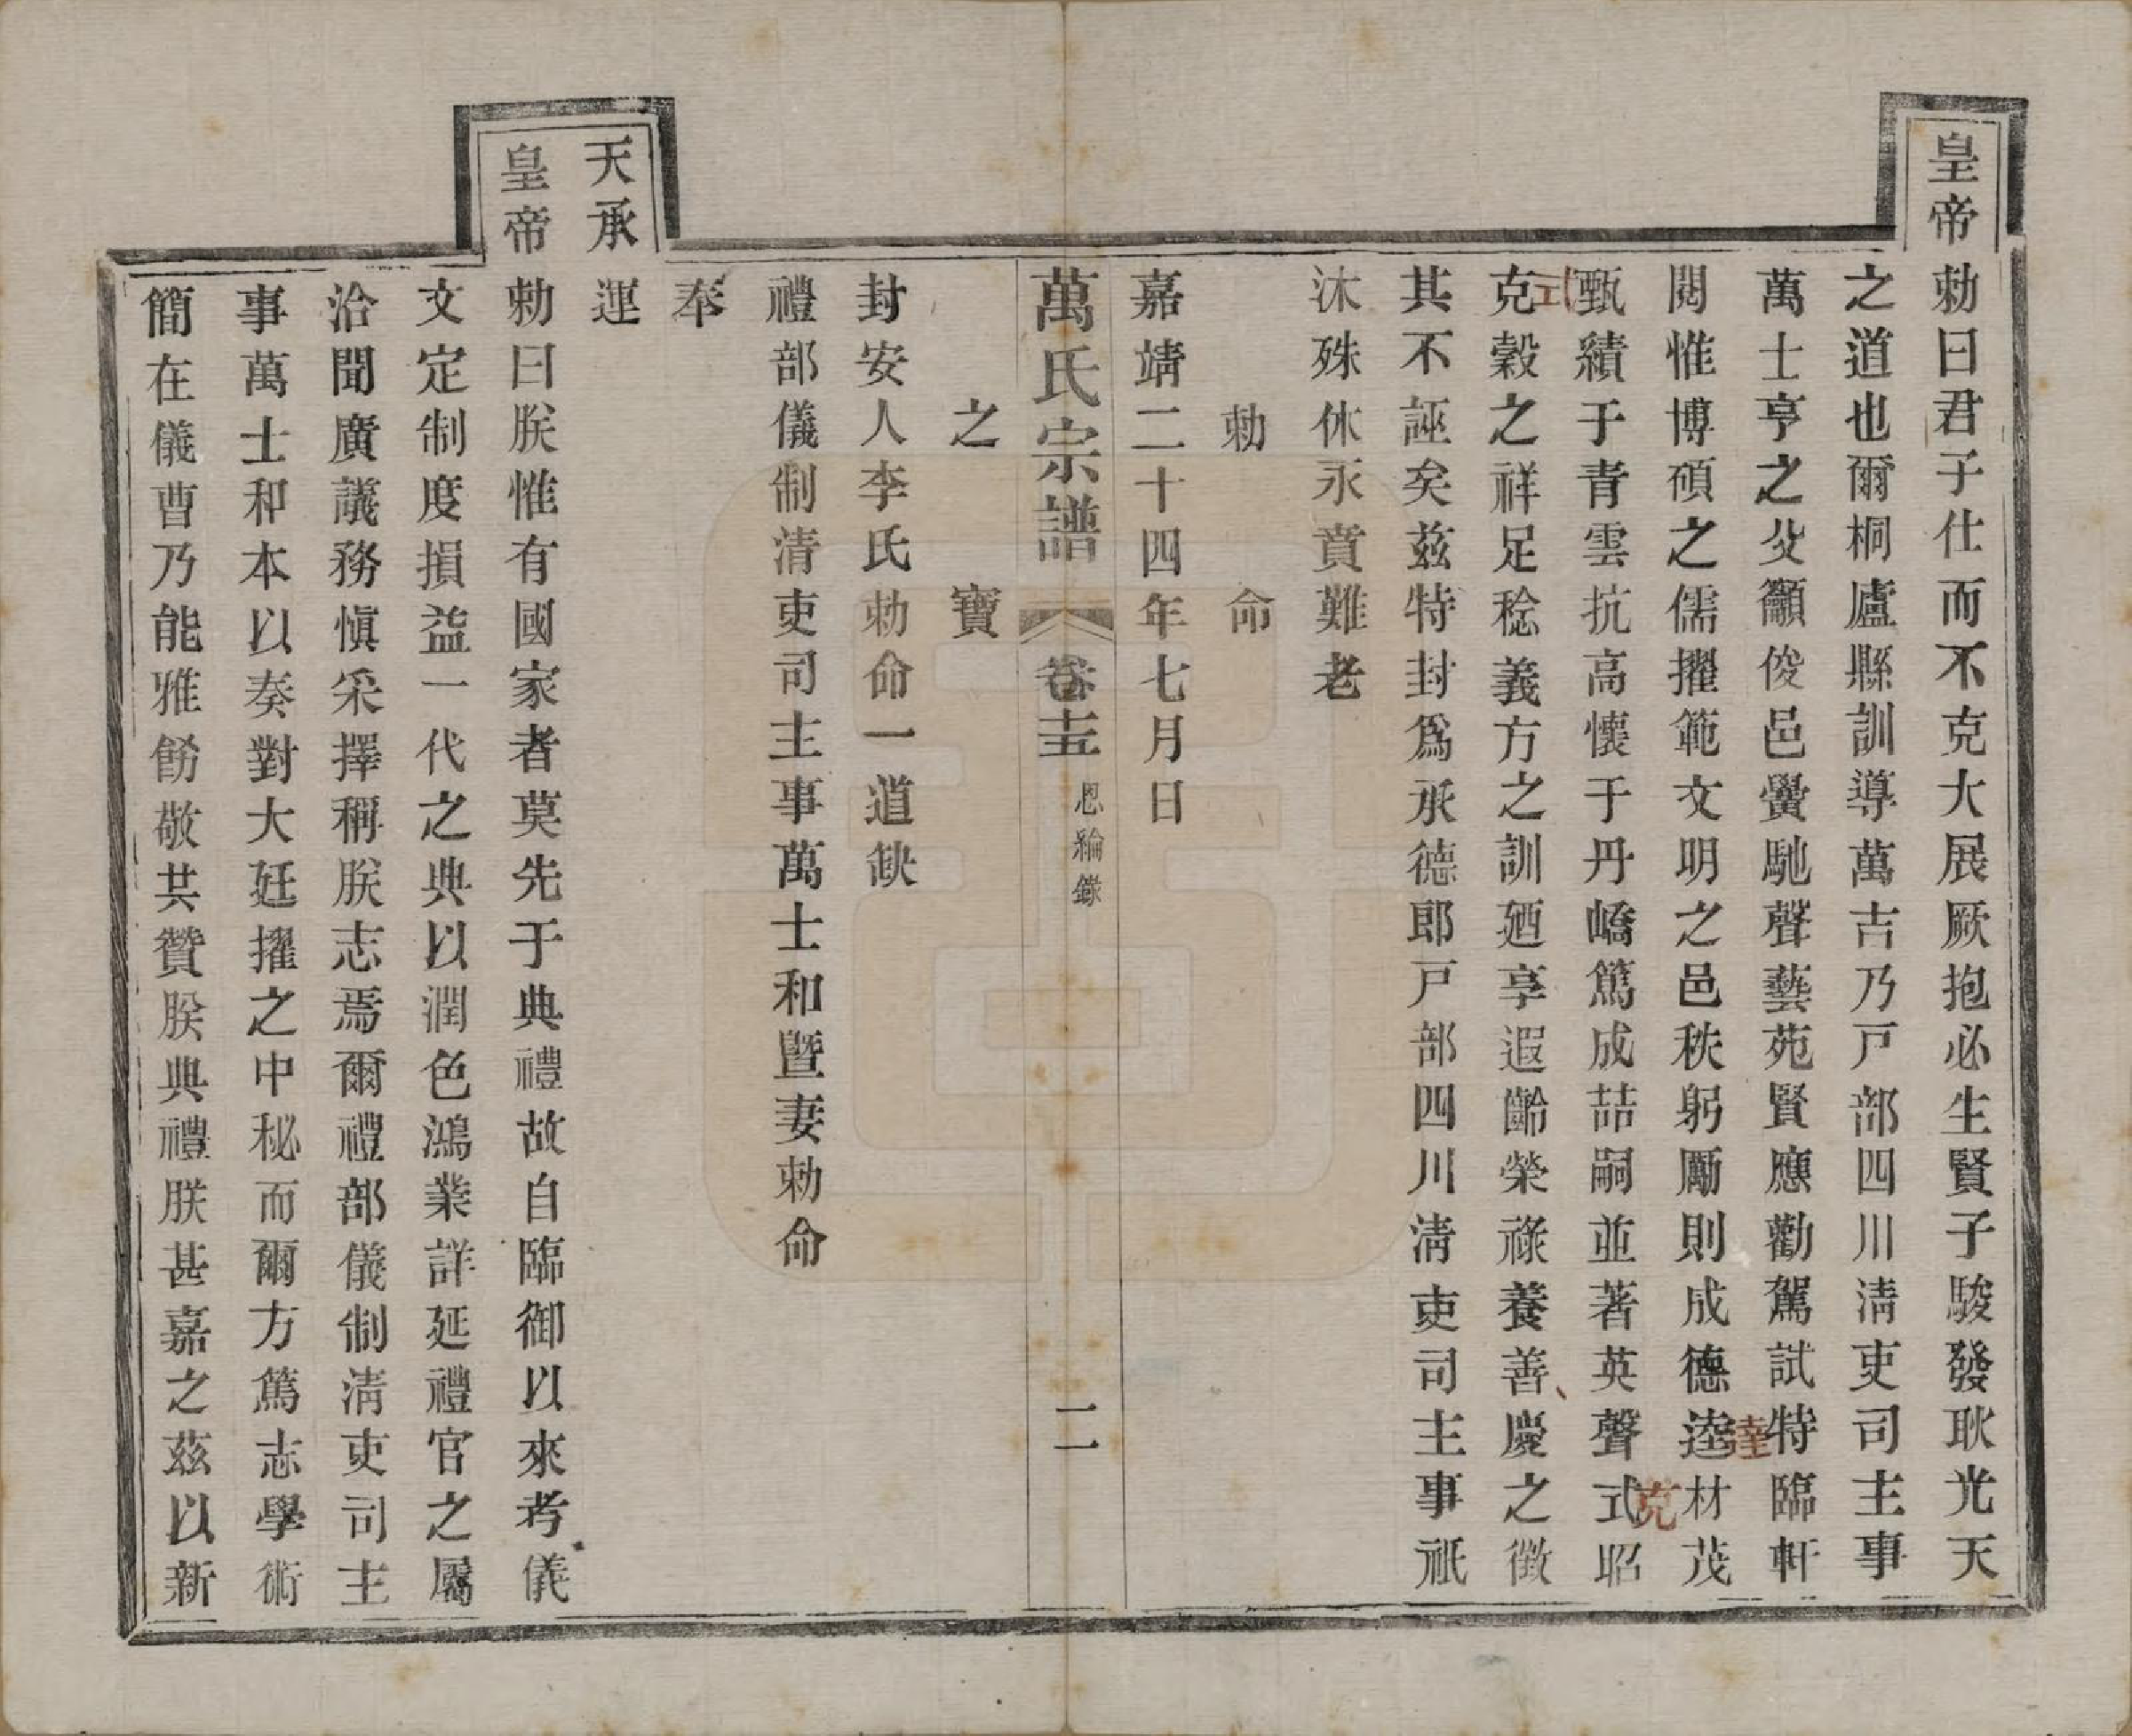 皇帝勅曰君子仕而不克大展厥抱必生賢子駿發耿光天
之道也爾桐廬縣訓導萬吉乃戸部四川清吏司主事
萬士亨之父籲俊邑黌馳聲藝苑賢應勸駕試特臨軒
達
閱惟博碩之儒擢範文明之邑秩躬勵則成德逵材茂
克
甄績于青雲抗高懷于丹嶠篤成喆嗣並著英聲式昭
式
克穀之祥足稔義方之訓廼享遐齡榮祿養善慶之徵
其不誣矣茲特封爲承德郎戸部四川清吏司主事祇
沐殊休永賁難老
勅命
嘉靖二十四年七月日
萬氏宗譜 卷十五 恩綸錄 二
之寶
封安人李氏勅命一道缺
禮部儀制清吏司主事萬士和暨妻勅命
奉
天承運
皇帝勅曰朕惟有國家者莫先于典禮故自臨御以來考儀
文定制度損益一代之典以潤色鴻業詳延禮官之屬
洽聞廣議務愼采擇稱朕志焉爾禮部儀制清吏司主
事萬士和本以奏對大廷擢之中秘而爾方篤志學術
簡在儀曹乃能雅飭敬共贊朕典禮朕甚嘉之茲以新